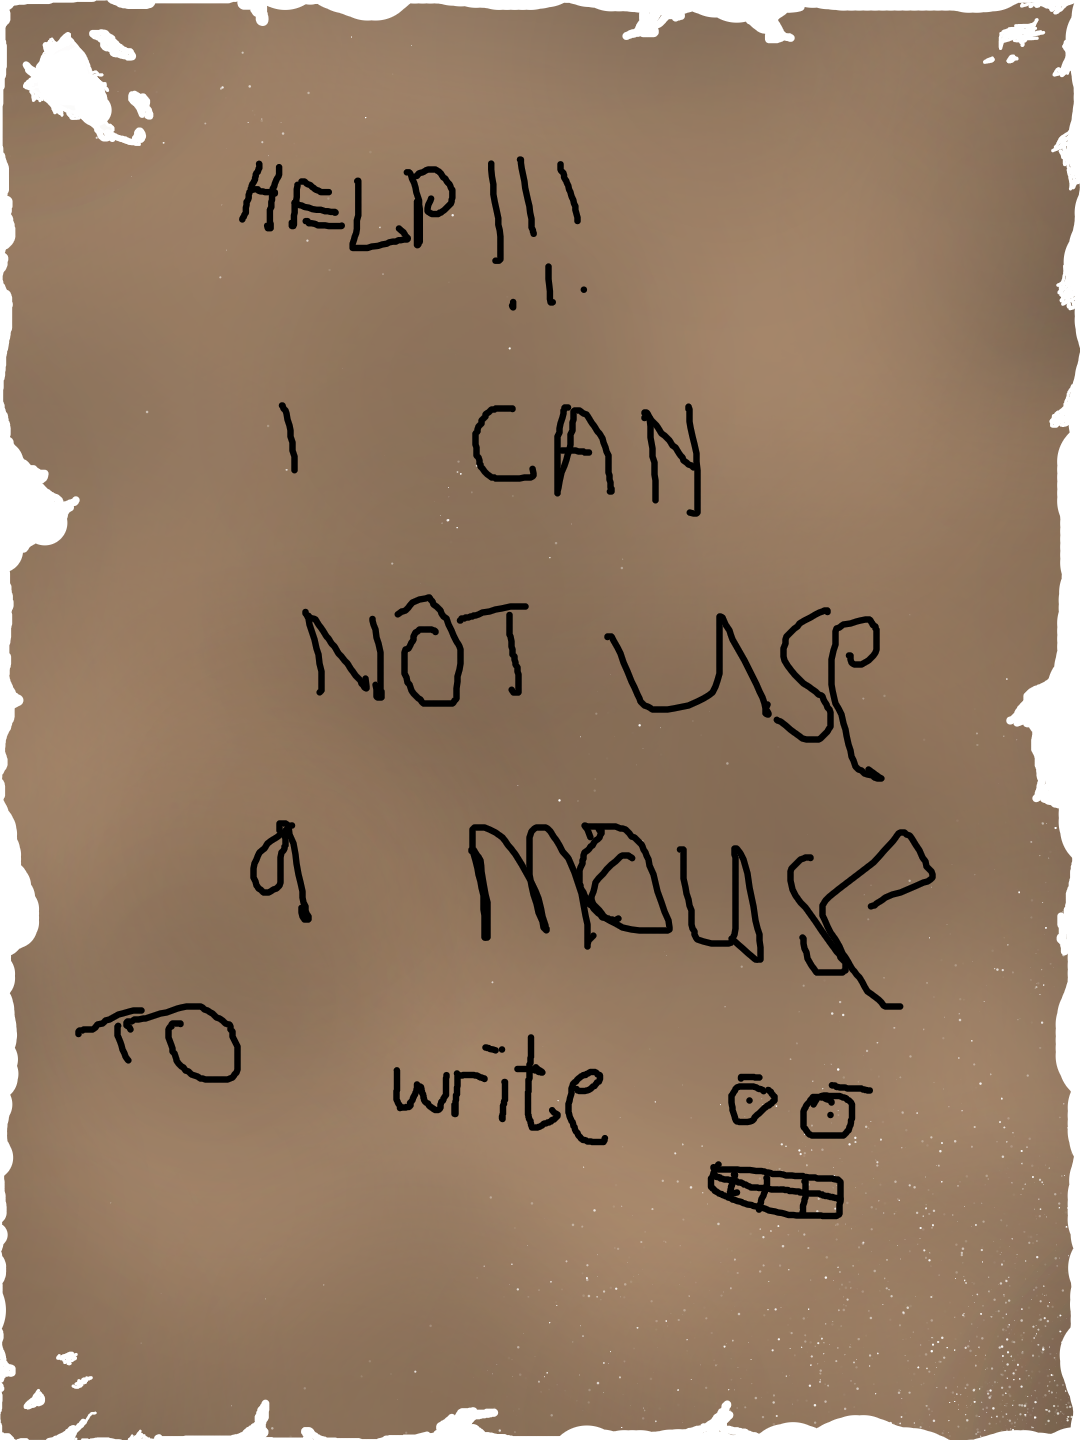 HELP!!!
I CAN
NOT USE
a MOUSE
TO write